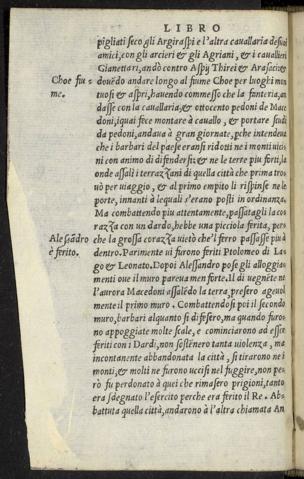 LIBRO
pigliati seco gli Argiraspi e l'altra cauallaria de suoi
amici, con gli arcieri & gli Agriani, & i cauallieri
Gianettari, andò contro Aspij Thirei & Arasaci: &
Choe fiu= deuēdo andare longo al fiume Choe per luoghi mon
me. tuosi & aspri, hauendo commesso che la fanteria, an
dasse con la cauallaria, & ottocento pedoni de Mace
doni, iquai fece montare à cauallo, & portare scudi
da pedoni, andaua à gran giornate, pche intendeua
che i barbari del paese eransi ridotti ne i monti vici
ni con animo di difendersi: & ne le terre piu forti, la
onde assalì i terrazzani di quella città che prima tro
uò per uiaggio, & al primo empito li rispinse ne le
porte, innanti à lequali s'erano posti in ordinanza.
Ma combattendo piu attentamente, passatagli la co
razza con un dardo, hebbe una picciola ferita, pero
Alesādro che la grossa corazza uietò che'l ferro passasse più à
è ferito. dentro. Parimente ui furono feriti Ptolomeo di La
go & Leonato. Dopoi Alessandro pose gli alloggia
menti oue il muro pareua men forte. Il dì uegnēte ne
l'aurora Macedoni assalēdo la terra, presero ageuol
mente il primo muro. Combattendosi poi il secondo
muro, barbari alquanto si difesero, ma quando furo=
no appoggiate molte scale, e cominciarono ad essere
feriti con i Dardi, non sostēnero tanta uiolenza, ma
incontanente abbandonata la città, si tirarono ne i
monti, & molti ne furono uccisi nel fuggire, non pe=
rò fu perdonato à quei che rimasero prigioni, tanto
era sdegnato l'esercito perche era ferito il Re. Ab=
battuta quella città, andarono à l'altra chiamata An